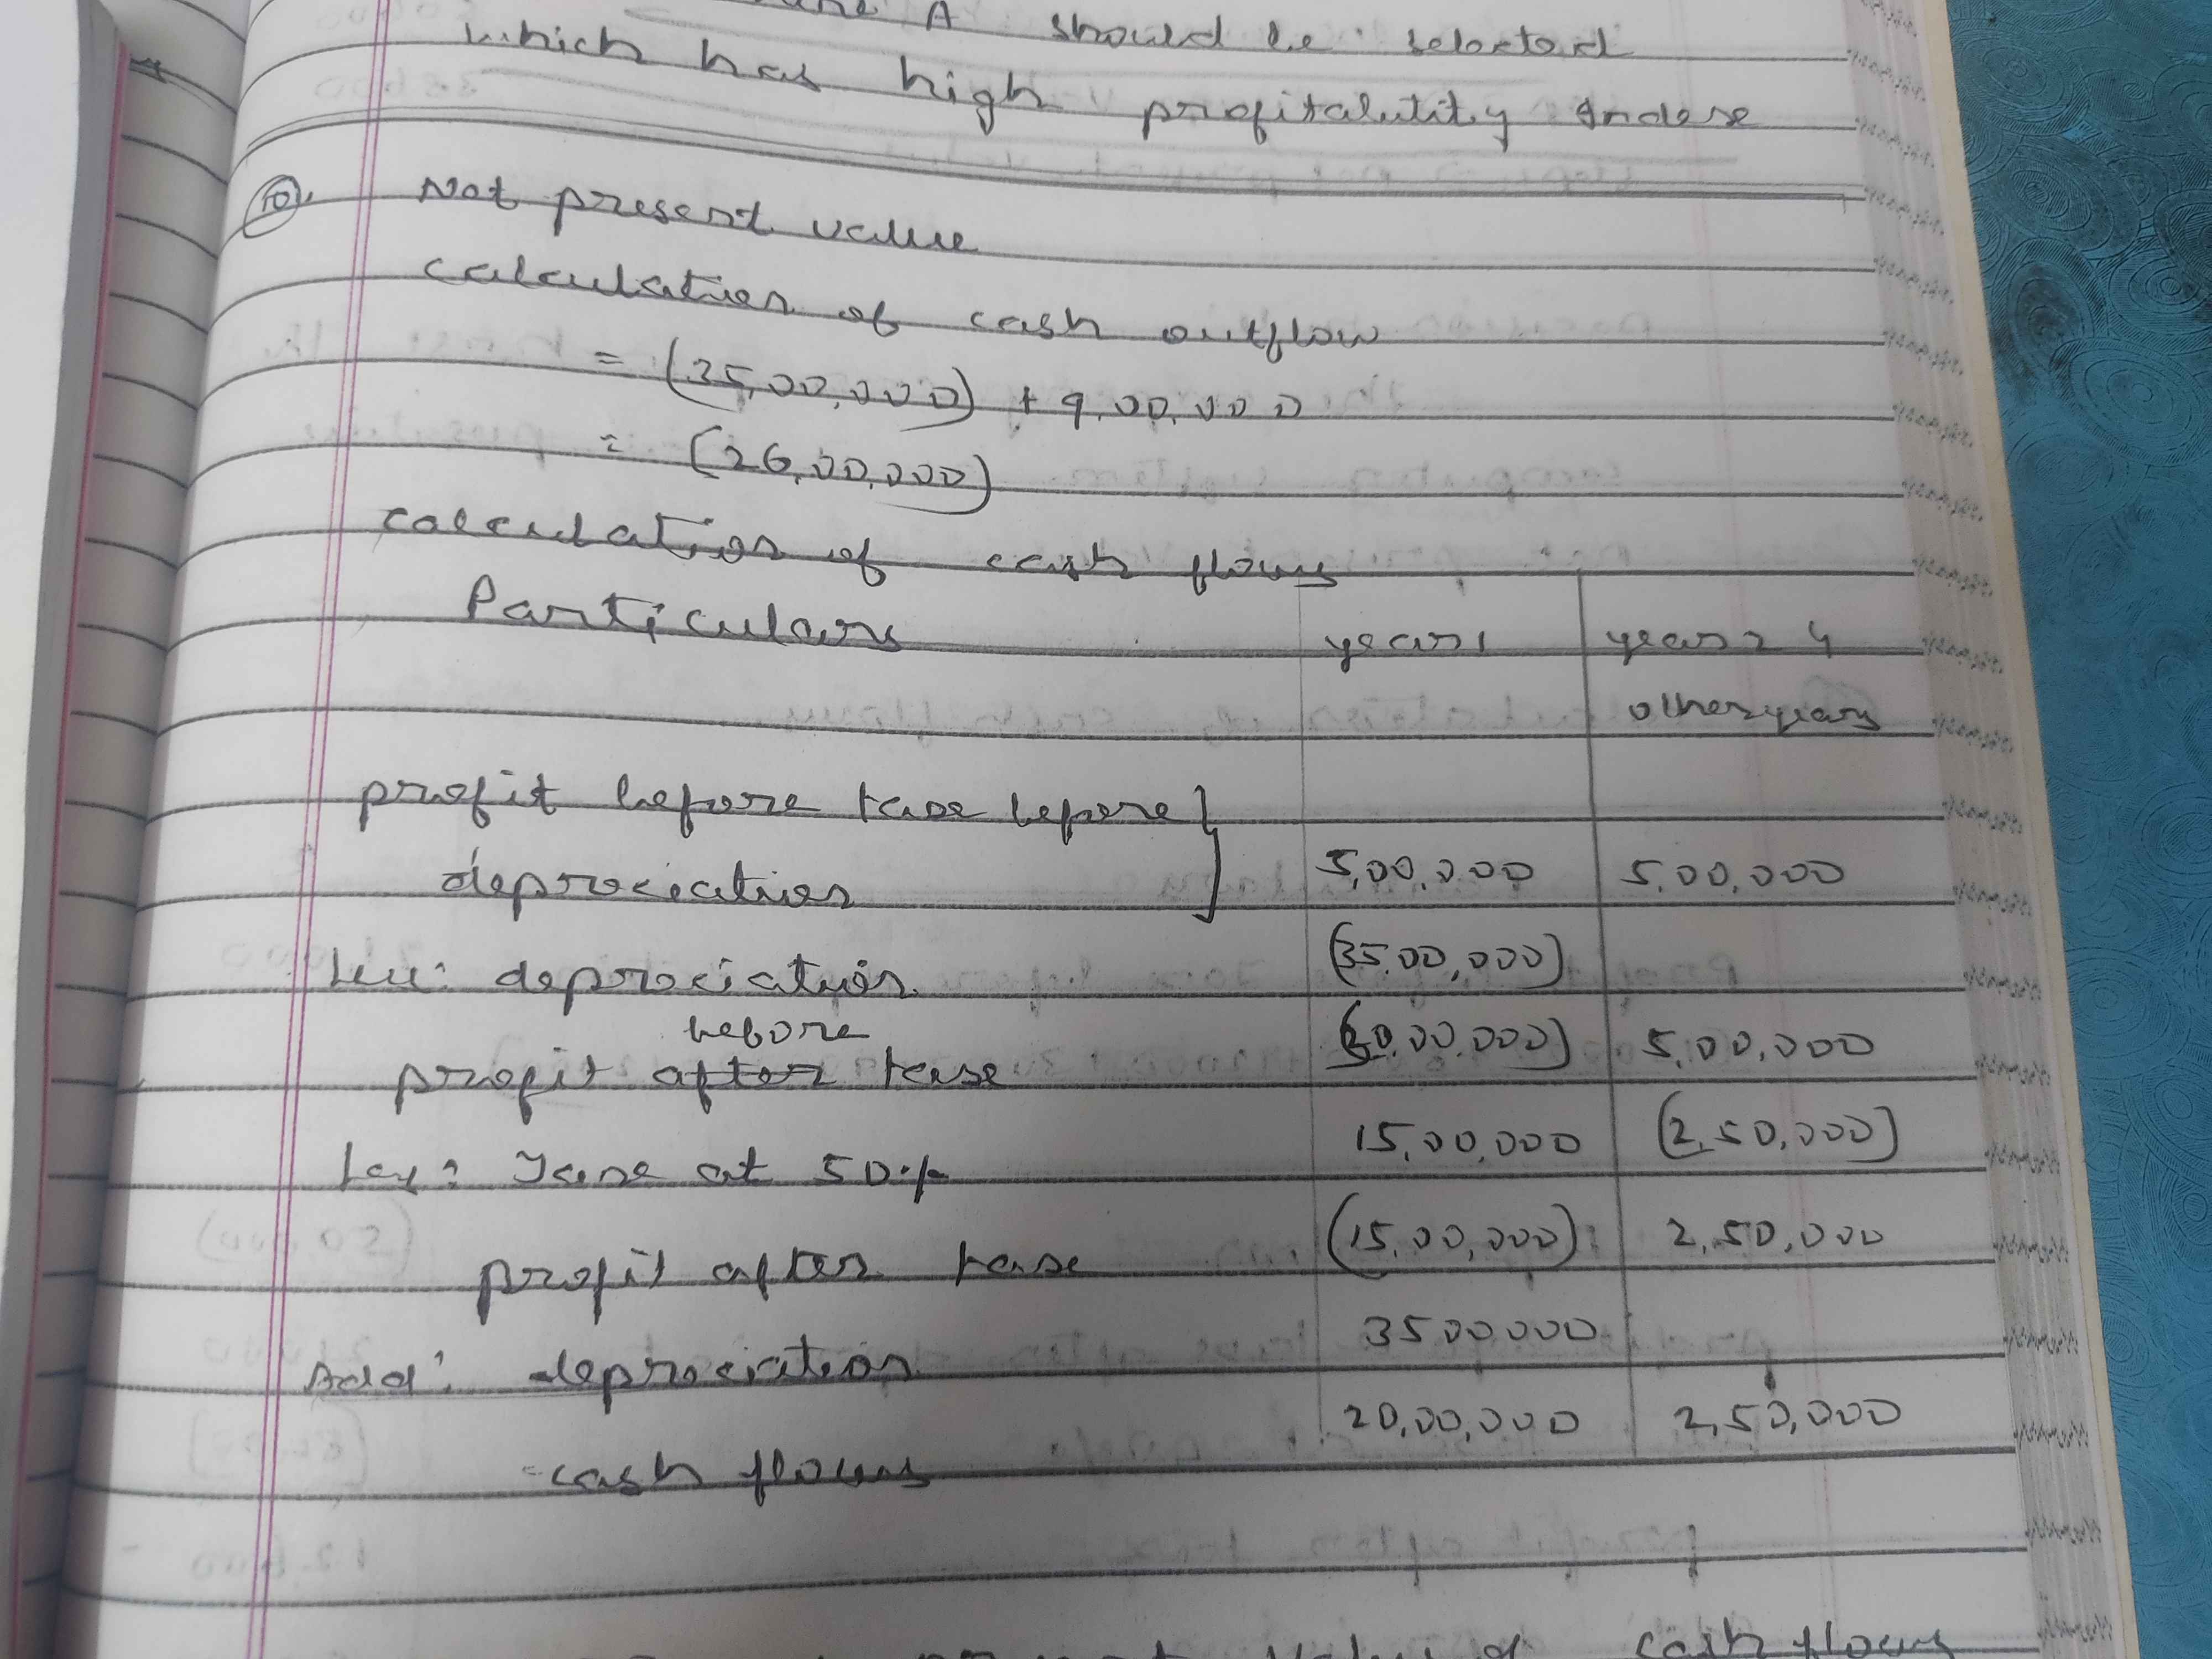 A should be selected
which has high profitalutity Index
10. Net present value
calculation of cash outflow
= (35,00,000) + 9,00,000
= (26,00,000)
calculation of cash flows
Particulars year 1 year 2 &
other years
profit before tax before
depreciation 5,00,000 5,00,000
Less: depreciation (35,00,000)
before
profit after tax (30,00,000) 5,00,000
Less: Tax at 50% 15,00,000 (2,50,000)
profit after tax (15,00,000) 2,50,000
Add: depreciation 3500000
cash flows 20,00,000 2,50,000
value of cash flows